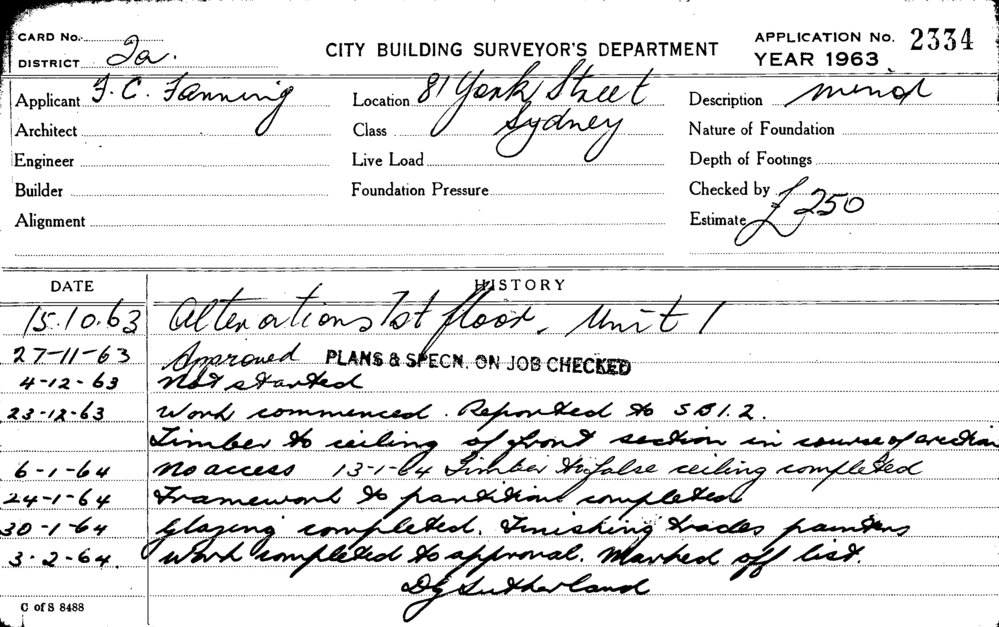 CARD No.
DISTRICT 2a.
CITY BUILDING SURVEYOR'S DEPARTMENT
APPLICATION No. 2334
YEAR 1963
Applicant F. C. Fanning
Location 81 York Street
Sydney
Description minor
Architect
Class
Nature of Foundation
Engineer
Live Load
Depth of Footings
Builder
Foundation Pressure
Checked by
Alignment
Estimate £250
DATE HISTORY
15.10.63 Alterations 1st floor. Unit 1
27-11-63 Approved PLANS & SPECN. ON JOB CHECKED
4-12-63 Not started
23-12-63 Work commenced. Reported to SBI.2.
Timber to ceiling of front section in course of erection
6-1-64 No access 13-1-64 Timber to false ceiling completed
24-1-64 Framework to partitions completed
30-1-64 Glazing completed. Finishing trades painters
3-2-64. Work completed to approval. Marked off list.
DG Sutherland
C of S 8488